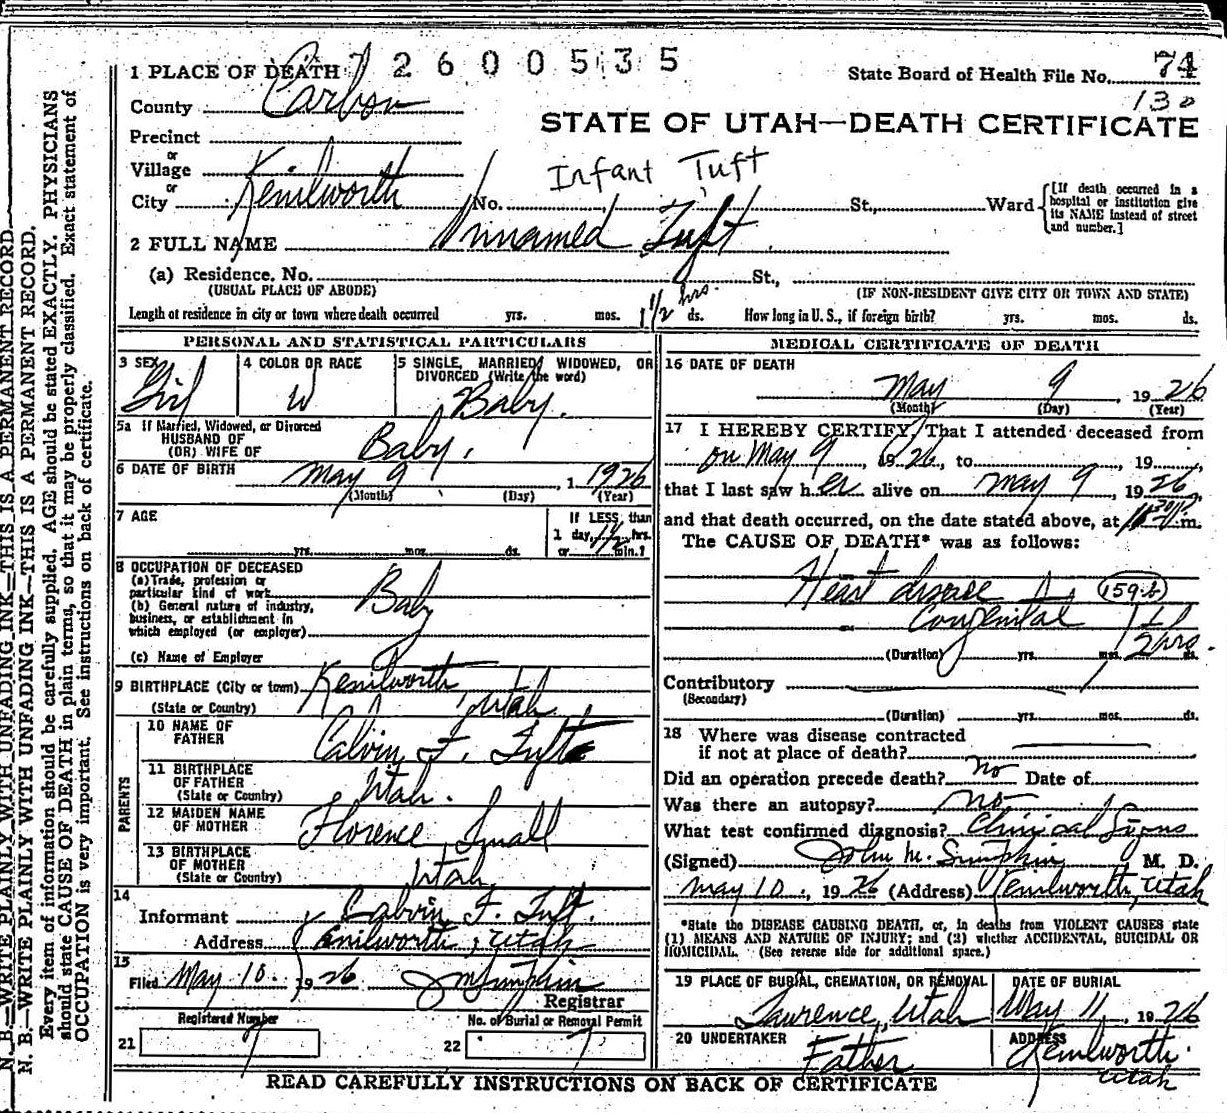 2600535
1 PLACE OF DEATH
State Board of Health File No. 74
130
County Carbon
STATE OF UTAH—DEATH CERTIFICATE
Precinct
or
Village
or
City Kenilworth No. St., Ward
Infant Tuft
[If death occurred in a hospital or institution give its NAME instead of street and number.]
2 FULL NAME Unnamed Tuft
(a) Residence, No. St.,
(USUAL PLACE OF ABODE)
(IF NON-RESIDENT GIVE CITY OR TOWN AND STATE)
Length of residence in city or town where death occurred yrs. mos. 1 1/2 hrs. ds. How long in U. S., if foreign birth? yrs. mos. ds.
PERSONAL AND STATISTICAL PARTICULARS
3 SEX Girl
4 COLOR OR RACE W
5 SINGLE, MARRIED, WIDOWED, OR DIVORCED (Write the word) Baby.
5a If Married, Widowed, or Divorced
HUSBAND OF
(OR) WIFE OF Baby.
6 DATE OF BIRTH May 9 1926
(Month) (Day) (Year)
7 AGE yrs. mos. ds.
If LESS than
1 day, 1 1/2 hrs.
or min.?
8 OCCUPATION OF DECEASED
(a) Trade, profession or
particular kind of work Baby
(b) General nature of industry,
business, or establishment in
which employed (or employer)
(c) Name of Employer
9 BIRTHPLACE (City or town) Kenilworth
(State or Country) Utah
PARENTS
10 NAME OF
FATHER Calvin F. Tuft
11 BIRTHPLACE
OF FATHER
(State or Country) Utah.
12 MAIDEN NAME
OF MOTHER Florence Small
13 BIRTHPLACE
OF MOTHER
(State or Country) Utah
14
Informant Calvin F. Tuft.
Address Kenilworth, Utah
15
Filed May 10, 1926 J M Simpkin
Registrar
Registered Number
21 7
No. of Burial or Removal Permit
22 7
MEDICAL CERTIFICATE OF DEATH
16 DATE OF DEATH
May 9 1926
(Month) (Day) (Year)
17 I HEREBY CERTIFY, That I attended deceased from
on May 9, 1926, to , 19 ,
that I last saw her alive on May 9, 1926,
and that death occurred, on the date stated above, at m.
The CAUSE OF DEATH* was as follows:
Heart disease 159-b
Congenital
(Duration) yrs. mos. ds.
Contributory
(Secondary)
(Duration) yrs. mos. ds.
18 Where was disease contracted
if not at place of death?
Did an operation precede death? no Date of
Was there an autopsy? no.
What test confirmed diagnosis? Clinical Signs
(Signed) John M. Simpkin, M. D.
May 10., 1926 (Address) Kenilworth, Utah
*State the DISEASE CAUSING DEATH, or, in deaths from VIOLENT CAUSES state
(1) MEANS AND NATURE OF INJURY; and (2) whether ACCIDENTAL, SUICIDAL OR
HOMICIDAL. (See reverse side for additional space.)
19 PLACE OF BURIAL, CREMATION, OR REMOVAL
Lawrence, Utah
DATE OF BURIAL
May 11, 1926
20 UNDERTAKER
Father
ADDRESS
Kenilworth.
Utah
READ CAREFULLY INSTRUCTIONS ON BACK OF CERTIFICATE
N. B.—WRITE PLAINLY WITH UNFADING INK—THIS IS A PERMANENT RECORD.
N. B.—WRITE PLAINLY WITH UNFADING INK—THIS IS A PERMANENT RECORD.
Every item of information should be carefully supplied. AGE should be stated EXACTLY. PHYSICIANS
should state CAUSE OF DEATH in plain terms, so that it may be properly classified. Exact statement of
OCCUPATION is very important. See instructions on back of certificate.